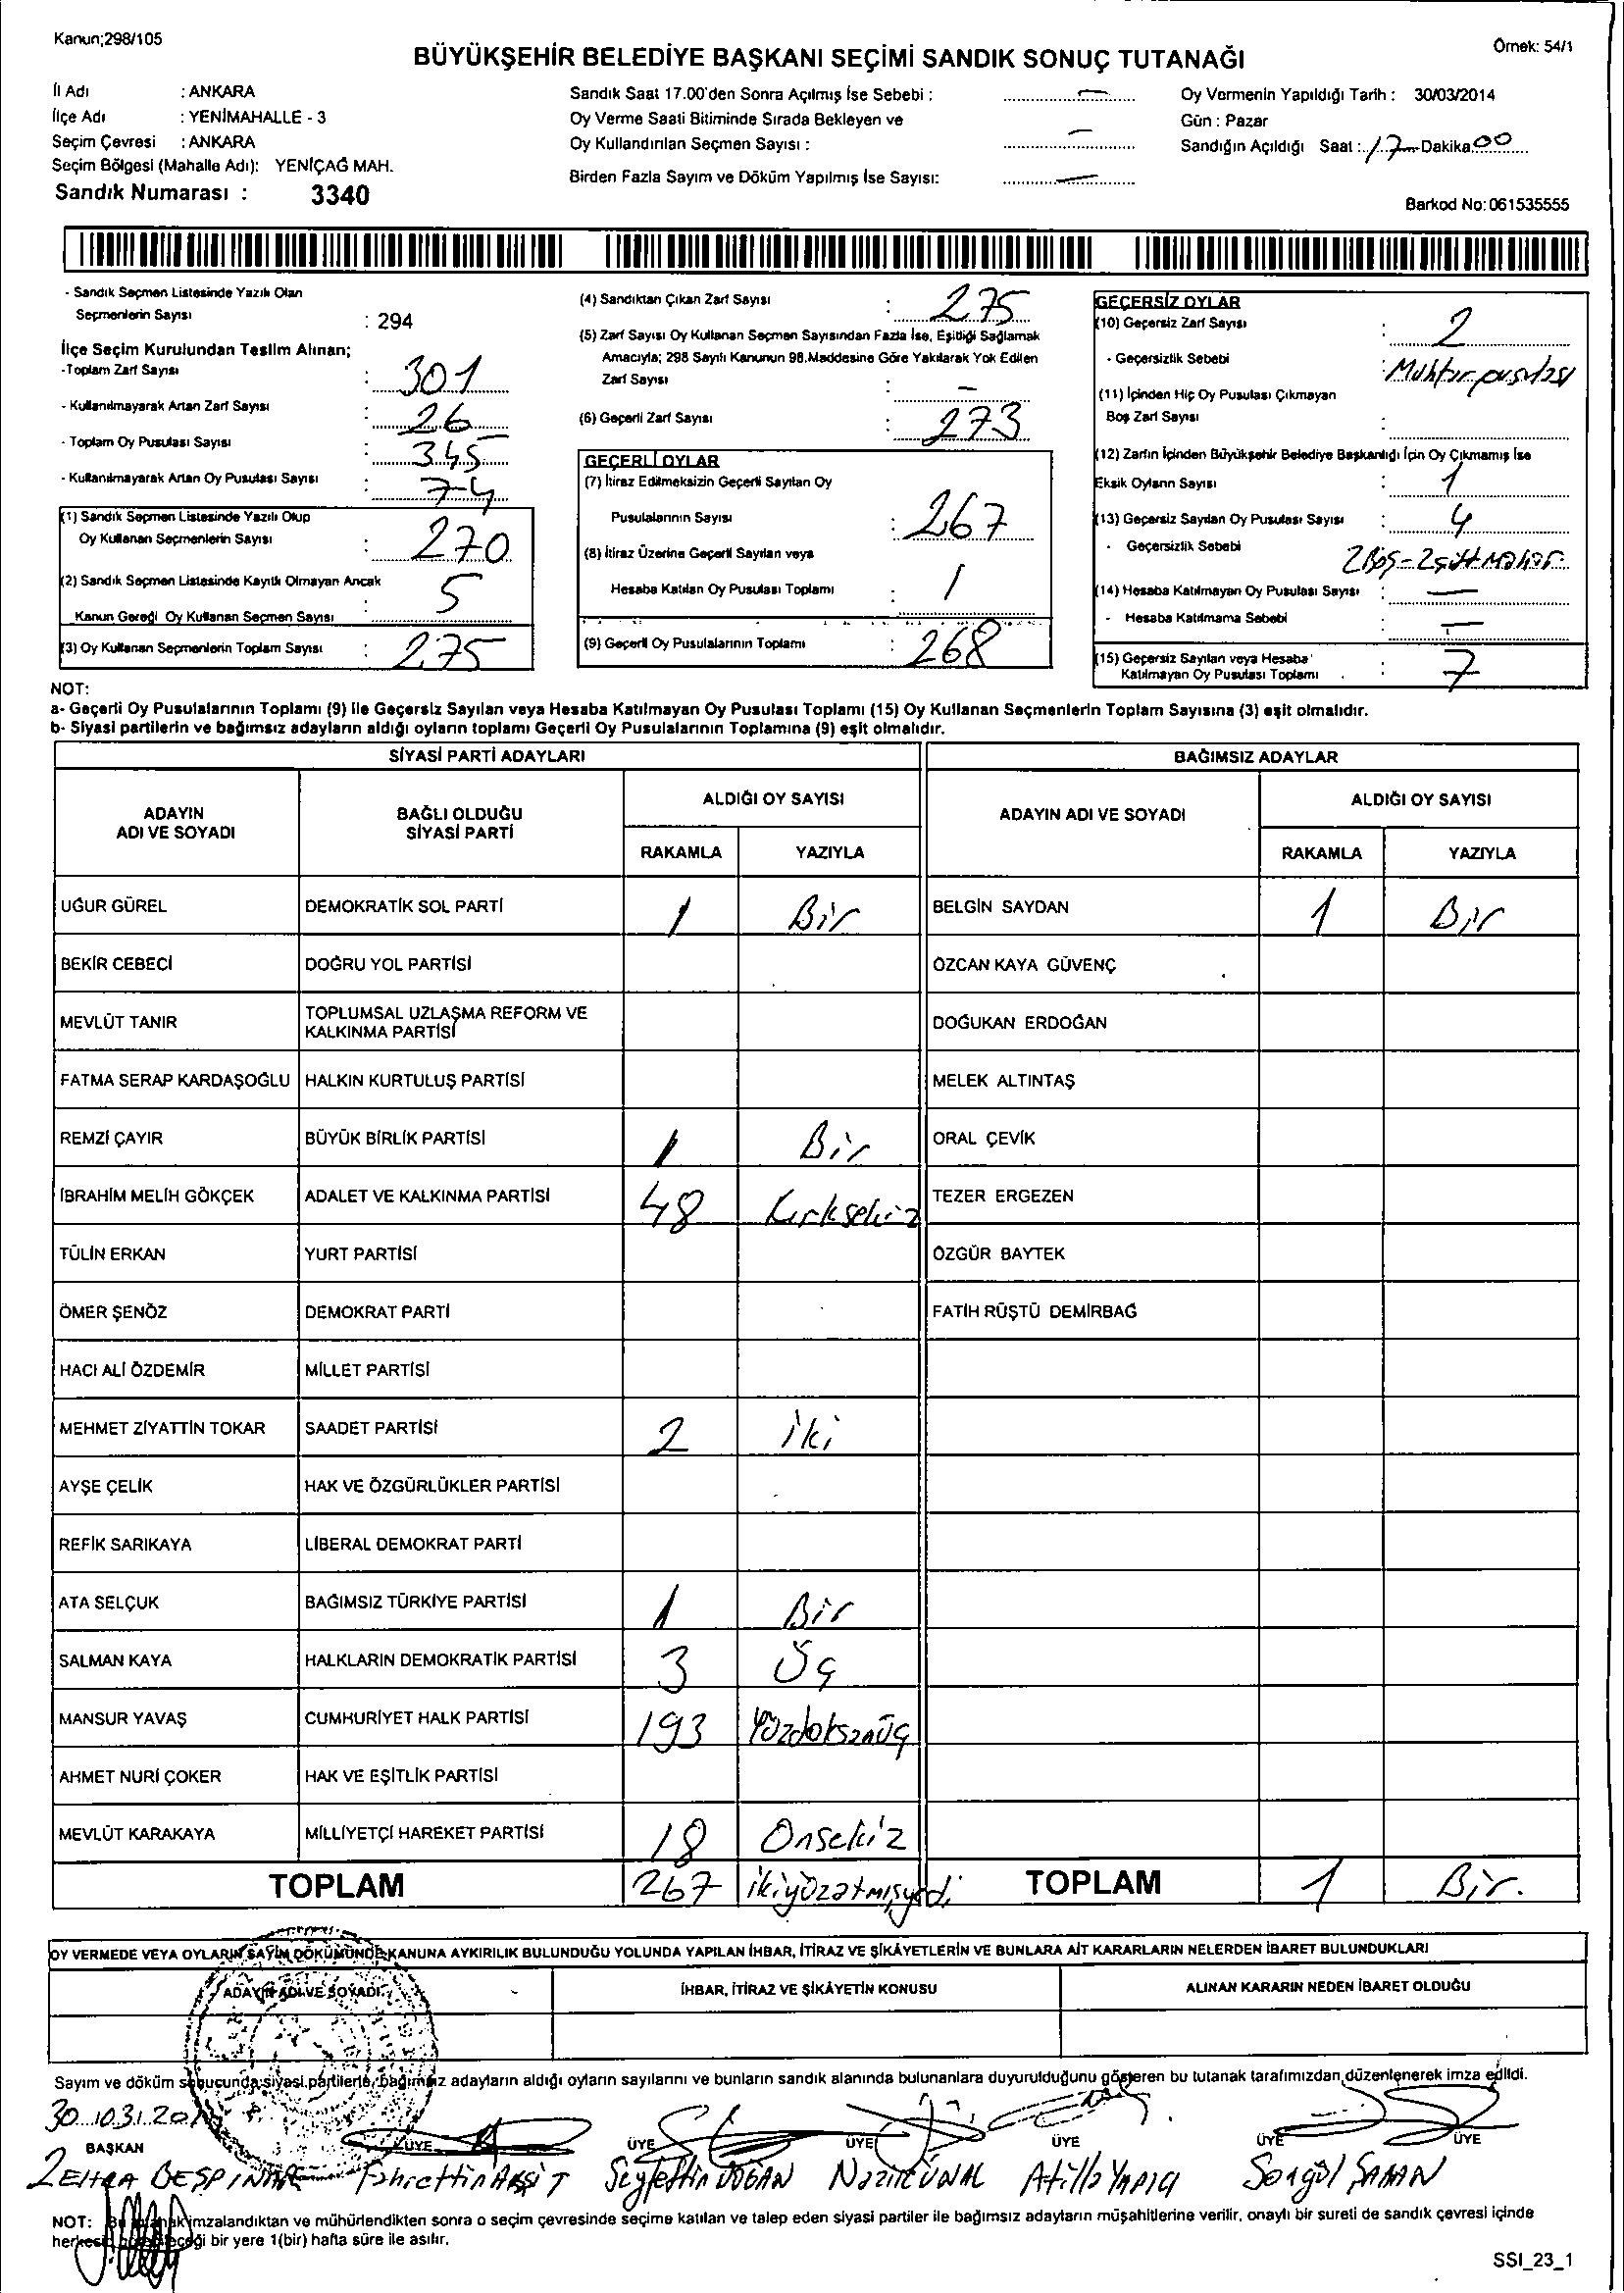 Kanun;298/105
Örnek: 54/1
BÜYÜKŞEHİR BELEDİYE BAŞKANI SEÇİMİ SANDIK SONUÇ TUTANAĞI
İl Adı : ANKARA
İlçe Adı : YENİMAHALLE - 3
Seçim Çevresi : ANKARA
Seçim Bölgesi (Mahalle Adı): YENİÇAĞ MAH.
Sandık Numarası : 3340
Sandık Saat 17.00'den Sonra Açılmış İse Sebebi : —
Oy Verme Saati Bitiminde Sırada Bekleyen ve
Oy Kullandırılan Seçmen Sayısı : —
Birden Fazla Sayım ve Döküm Yapılmış İse Sayısı: —
Oy Vermenin Yapıldığı Tarih : 30/03/2014
Gün : Pazar
Sandığın Açıldığı Saat : 17 Dakika 00
Barkod No: 061535555
- Sandık Seçmen Listesinde Yazılı Olan
Seçmenlerin Sayısı : 294
İlçe Seçim Kurulundan Teslim Alınan;
-Toplam Zarf Sayısı : 301
- Kullanılmayarak Artan Zarf Sayısı : 26
- Toplam Oy Pusulası Sayısı : 345
- Kullanılmayarak Artan Oy Pusulası Sayısı : 74
(1) Sandık Seçmen Listesinde Yazılı Olup
Oy Kullanan Seçmenlerin Sayısı : 270
(2) Sandık Seçmen Listesinde Kayıtlı Olmayan Ancak
Kanun Gereği Oy Kullanan Seçmen Sayısı : 5
(3) Oy Kullanan Seçmenlerin Toplam Sayısı : 275
(4) Sandıktan Çıkan Zarf Sayısı : 275
(5) Zarf Sayısı Oy Kullanan Seçmen Sayısından Fazla İse, Eşitliği Sağlamak
Amacıyla; 298 Sayılı Kanunun 98.Maddesine Göre Yakılarak Yok Edilen
Zarf Sayısı : —
(6) Geçerli Zarf Sayısı : 273
GEÇERLİ OYLAR
(7) İtiraz Edilmeksizin Geçerli Sayılan Oy
Pusulalarının Sayısı : 267
(8) İtiraz Üzerine Geçerli Sayılan veya
Hesaba Katılan Oy Pusulası Toplamı : 1
(9) Geçerli Oy Pusulalarının Toplamı : 268
GEÇERSİZ OYLAR
(10) Geçersiz Zarf Sayısı : 2
- Geçersizlik Sebebi : Muhtar pusulası
(11) İçinden Hiç Oy Pusulası Çıkmayan
Boş Zarf Sayısı :
(12) Zarfın İçinden Büyükşehir Belediye Başkanlığı İçin Oy Çıkmamış İse
Eksik Oyların Sayısı : 1
(13) Geçersiz Sayılan Oy Pusulası Sayısı : 4
- Geçersizlik Sebebi 2 Boş - 2 çift Mühür
(14) Hesaba Katılmayan Oy Pusulası Sayısı : —
- Hesaba Katılmama Sebebi : —
(15) Geçersiz Sayılan veya Hesaba
Katılmayan Oy Pusulası Toplamı : 7
NOT:
a- Geçerli Oy Pusulalarının Toplamı (9) ile Geçersiz Sayılan veya Hesaba Katılmayan Oy Pusulası Toplamı (15) Oy Kullanan Seçmenlerin Toplam Sayısına (3) eşit olmalıdır.
b- Siyasi partilerin ve bağımsız adayların aldığı oyların toplamı Geçerli Oy Pusulalarının Toplamına (9) eşit olmalıdır.
SİYASİ PARTİ ADAYLARI BAĞIMSIZ ADAYLAR
ADAYIN ADI VE SOYADI BAĞLI OLDUĞU SİYASİ PARTİ ALDIĞI OY SAYISI ADAYIN ADI VE SOYADI ALDIĞI OY SAYISI
RAKAMLA YAZIYLA RAKAMLA YAZIYLA
UĞUR GÜREL DEMOKRATİK SOL PARTİ 1 Bir BELGİN SAYDAN 1 Bir
BEKİR CEBECİ DOĞRU YOL PARTİSİ ÖZCAN KAYA GÜVENÇ
MEVLÜT TANIR TOPLUMSAL UZLAŞMA REFORM VE KALKINMA PARTİSİ DOĞUKAN ERDOĞAN
FATMA SERAP KARDAŞOĞLU HALKIN KURTULUŞ PARTİSİ MELEK ALTINTAŞ
REMZİ ÇAYIR BÜYÜK BİRLİK PARTİSİ 1 Bir ORAL ÇEVİK
İBRAHİM MELİH GÖKÇEK ADALET VE KALKINMA PARTİSİ 48 Kırksekiz TEZER ERGEZEN
TÜLİN ERKAN YURT PARTİSİ ÖZGÜR BAYTEK
ÖMER ŞENÖZ DEMOKRAT PARTİ FATİH RÜŞTÜ DEMİRBAĞ
HACI ALİ ÖZDEMİR MİLLET PARTİSİ
MEHMET ZİYATTİN TOKAR SAADET PARTİSİ 2 İki
AYŞE ÇELİK HAK VE ÖZGÜRLÜKLER PARTİSİ
REFİK SARIKAYA LİBERAL DEMOKRAT PARTİ
ATA SELÇUK BAĞIMSIZ TÜRKİYE PARTİSİ 1 Bir
SALMAN KAYA HALKLARIN DEMOKRATİK PARTİSİ 3 Üç
MANSUR YAVAŞ CUMHURİYET HALK PARTİSİ 193 Yüzdoksanüç
AHMET NURİ ÇOKER HAK VE EŞİTLİK PARTİSİ
MEVLÜT KARAKAYA MİLLİYETÇİ HAREKET PARTİSİ 18 Onsekiz
TOPLAM 267 ikiyüzatmışyedi TOPLAM 1 Bir.
OY VERMEDE VEYA OYLARIN SAYIM DÖKÜMÜNDE KANUNA AYKIRILIK BULUNDUĞU YOLUNDA YAPILAN İHBAR, İTİRAZ VE ŞİKÂYETLERİN VE BUNLARA AİT KARARLARIN NELERDEN İBARET BULUNDUKLARI
ADAYIN ADI VE SOYADI İHBAR, İTİRAZ VE ŞİKÂYETİN KONUSU ALINAN KARARIN NEDEN İBARET OLDUĞU
Sayım ve döküm sonucunda siyasi partilerle, bağımsız adayların aldığı oyların sayılarını ve bunların sandık alanında bulunanlara duyurulduğunu gösteren bu tutanak tarafımızdan düzenlenerek imza edildi.
30.03.201
BAŞKAN ÜYE ÜYE ÜYE ÜYE ÜYE ÜYE
ZEHRA BESPINAR Fahrettin AKŞİT Seyfettin DOĞAN Nazire ÜNAL Atilla YAPICI Songül ŞAHAN
NOT: Bu tutanak imzalandıktan ve mühürlendikten sonra o seçim çevresinde seçime katılan ve talep eden siyasi partiler ile bağımsız adayların müşahitlerine verilir, onaylı bir sureti de sandık çevresi içinde
herkesin görebileceği bir yere 1(bir) hafta süre ile asılır.
SSI_23_1